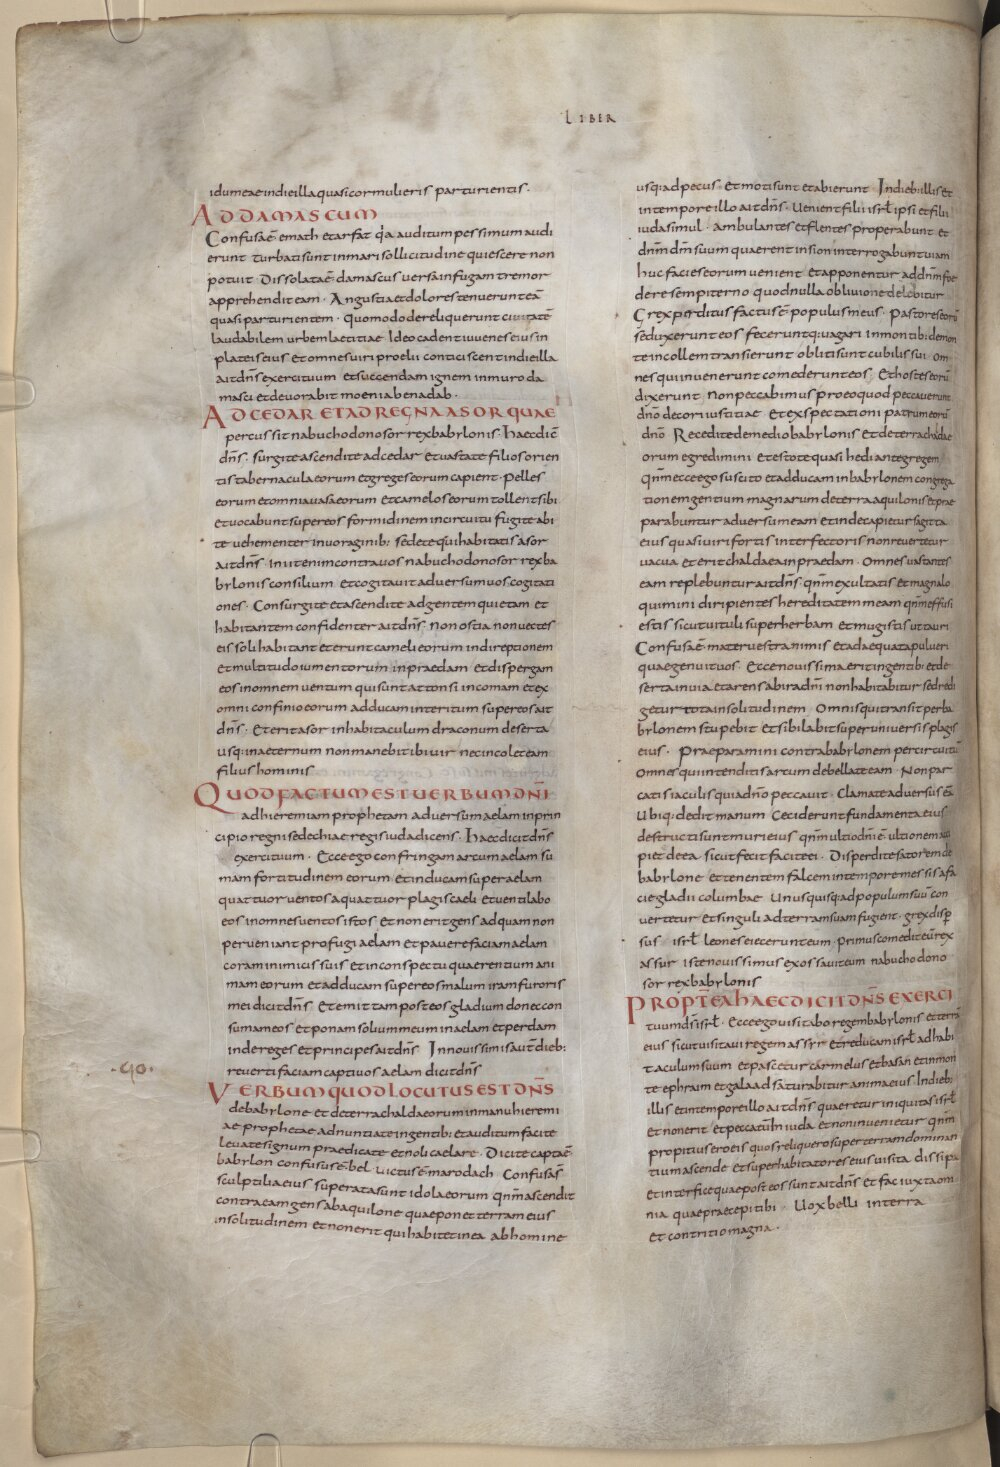 LIBER
idumeae indie illa quasi cor mulieris parturientis·
AD DAMASCUM
Confusa ē emath et arfat q̇a auditum pessimum audi
erunt turbati sunt in mari sollicitudine quiescere non
potuit Dissoluta ē damascus versa in fugam tremor
apprehendit eam· Angustia et dolores tenuerunt eā
quasi parturientem· Quomodo dereliquerunt civitatē
laudabilem urbem laetitiae Ideo cadent iuvenes eius in
plateis eius et omnes viri proelii conticiscent in die illa
ait dn̄s exercituum et succendam ignem in muro da
masci et devorabit moenia benadab·
AD CEDAR ET AD REGNA ASOR QUAE
percussit nabuchodonosor rex babylonis· haec dic̄
dn̄s· surgite ascendite ad cedar et vastate filios orien
tis tabernacula eorum et greges eorum capient· Pelles
eorum et omnia vasa eorum et camelos eorum tollent sibi
et vocabunt super eos formidinem in circuitu fugite abi
te vehementer in voraginib; sedete qui habitatis asor
ait dn̄s· iniit enim contra vos nabuchodonosor rex ba
bylonis consilium et cogitavit adversum vos cogitati
ones· Consurgite et ascendite ad gentem quietam et
habitantem confidenter ait dn̄s· non ostia non vectes
eis soli habitant et erunt cameli eorum in direptionem
et multitudo iumentorum in praedam et dispergam
eos in omnem ventum qui sunt attonsi in comam et ex
omni confinio eorum adducam interitum super eos ait
dn̄s· Et erit asor in habitaculum draconum deserta
usq; in aeternum non manebit ibi vir nec incolet eam
filius hominis
QUOD FACTUM EST VERBUM DN̄I
ad hieremiam prophetam adversum aelam in prin
cipio regni sedechiae regis iuda dicens· Haec dicit dn̄s
exercituum· Ecce ego confringam arcum aelam su
mam fortitudinem eorum et inducam super aelam
quattuor ventos a quattuor plagis caeli et ventilabo
eos in omnes ventos istos et non erit gens ad quam non
perveniant profugi aelam et pavere faciam aelam
coram inimicis suis et in conspectu quaerentium ani
mam eorum et adducam super eos malum iram furoris
mei dicit dn̄s· Et emittam post eos gladium donec con
sumam eos et ponam solium meum in aelam et perdam
inde reges et principes ait dn̄s In novissimis aut̄ dieb:
reverti faciam captivos aelam dicit dn̄s
VERBUM QUOD LOCUTUS EST DN̄S
de babylone et de terra chaldaeorum in manu hieremi
ae prophetae adnuntiate in gentib: et auditum facite
levate signum praedicate et nolite celare· Dicite capta ē
babylon confusus ē bel victus ē marodach· Confusa s̄
sculptilia eius superata sunt idola eorum qn̄m ascendit
contra eam gens ab aquilone quae ponet terram eius
in solitudinem et non erit qui habitet in ea ab homine
usq; ad pecus· et moti sunt et abierunt In dieb; illis et
in tempore illo ait dn̄s· Venient filii isrl̄ ipsi et filii
iuda simul· ambulantes et flentes properabunt et
dn̄m dm̄ suum quaerent in sion interrogabunt viam
huc facies eorum venient et apponentur ad dn̄m foe
dere sempiterno quod nulla oblivione delebitur
Grex perditus factus ē populus meus· Pastores eorū
seduxerunt eos feceruntq; vagari in montib; de mon
te in collem transierunt obliti sunt cubilis sui· om
nes qui invenerunt comederunt eos· Et hostes eorū
dixerunt· non peccabimus pro eo quod peccaverunt
dn̄o decori iustitiae et exspectationi patrum eorū
dn̄o Recedite de medio babylonis et de terra chaldae
orum egredimini et estote quasi hedi ante gregem
qn̄m ecce ego suscito et adducam in babylonem congrega
tionem gentium magnarum de terra aquilonis et prae
parabuntur adversum eam et inde capietur sagitta
eius quasi viri fortis interfectoris non revertetur
vacua et erit chaldaea in praedam· Omnes vastantes
eam replebuntur ait dn̄s· qn̄m exultatis et magna lo
quimini diripientes hereditatem meam qn̄m effusi
estis sicut vituli super herbam et mugistis ut tauri
Confusa ē mater vestra nimis et adaequata pulveri
quae genuit vos· Ecce novissima erit in gentib; et de
serta invia et arens ab ira dn̄i non habitabitur sed redi
getur tota in solitudinem Omnis qui transit per ba
bylonem stupebit et sibilabit super universis plagis
eius· Praeparamini contra babylonem per circuitū
Omnes qui intenditis arcum debellate eam· Non par
catis iaculis quia dn̄o peccavit· Clamate adversus eā
Ubiq; dedit manum Ceciderunt fundamenta eius
destructi sunt muri eius qn̄m ultio dn̄i ē· ultionem acci
pite de ea sicut fecit facite ei· Disperdite satorem de
babylone et tenentem falcem in tempore messis a fa
cie gladii columbae Unusquisq; ad populum suū con
vertetur et singuli ad terram suam fugient· grex disp̄
sus isrl̄ leones eiecerunt eum· primus comedit eū rex
assur iste novissimus exossavit eum nabuchodono
sor rex babylonis
PROPTEREA HAEC DICIT DN̄S EXERCI
tuum ds̄ isrl̄· Ecce ego visitabo regem babylonis et terrā
eius sicut visitavi regem assyr et reducam isrl̄ ad habi
taculum suum et pascetur carmelus et basan et in mon
te ephraim et galaad saturabitur anima eius· In dieb;
illis et in tempore illo ait dn̄s quaeretur iniquitas isrl̄
et non erit et peccatum̄ iuda et non invenietur qn̄m
propitius ero eis quos reliquero super terram dominan
tium ascende et super habitatores eius visita dissipa
et interfice quae post eos sunt ait dn̄s et fac iuxta om
nia quae praecepi tibi Vox belli in terra
et contritio magna·